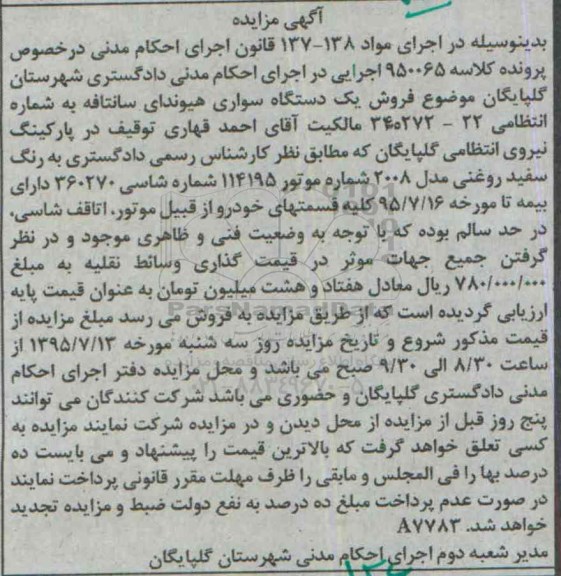 آگهی مزایده
بدینوسیله در اجرای مواد ۱۳۸-۱۳۷ قانون اجرای احکام مدنی درخصوص
پرونده کلاسه ۹۵۰۰۶۵ اجرایی در اجرای احکام مدنی دادگستری شهرستان
گلپایگان موضوع فروش یک دستگاه سواری هیوندای سانتافه به شماره
انتظامی ۲۲ - ۲۷۲ه۳۴ مالکیت آقای احمد قهاری توقیف در پارکینگ
نیروی انتظامی گلپایگان که مطابق نظر کارشناس رسمی دادگستری به رنگ
سفید روغنی مدل ۲۰۰۸ شماره موتور ۱۱۴۱۹۵ شماره شاسی ۳۶۰۲۷۰ دارای
بیمه تا مورخه ۹۵/۷/۱۶ کلیه قسمتهای خودرو از قبیل موتور، اتاقف شاسی،
در حد سالم بوده که با توجه به وضعیت فنی و ظاهری موجود و در نظر
گرفتن جمیع جهات موثر در قیمت گذاری وسائط نقلیه به مبلغ
۷۸۰/۰۰۰/۰۰۰ ریال معادل هفتاد و هشت میلیون تومان به عنوان قیمت پایه
ارزیابی گردیده است که از طریق مزایده به فروش می رسد مبلغ مزایده از
قیمت مذکور شروع و تاریخ مزایده روز سه شنبه مورخه ۱۳۹۵/۷/۱۳ از
ساعت ۸/۳۰ الی ۹/۳۰ صبح می باشد و محل مزایده دفتر اجرای احکام
مدنی دادگستری گلپایگان و حضوری می باشد شرکت کنندگان می توانند
پنج روز قبل از مزایده از محل دیدن و در مزایده شرکت نمایند مزایده به
کسی تعلق خواهد گرفت که بالاترین قیمت را پیشنهاد و می بایست ده
درصد بها را فی المجلس و مابقی را ظرف مهلت مقرر قانونی پرداخت نمایند
در صورت عدم پرداخت مبلغ ده درصد به نفع دولت ضبط و مزایده تجدید
خواهد شد. A۷۷۸۳
مدیر شعبه دوم اجرای احکام مدنی شهرستان گلپایگان